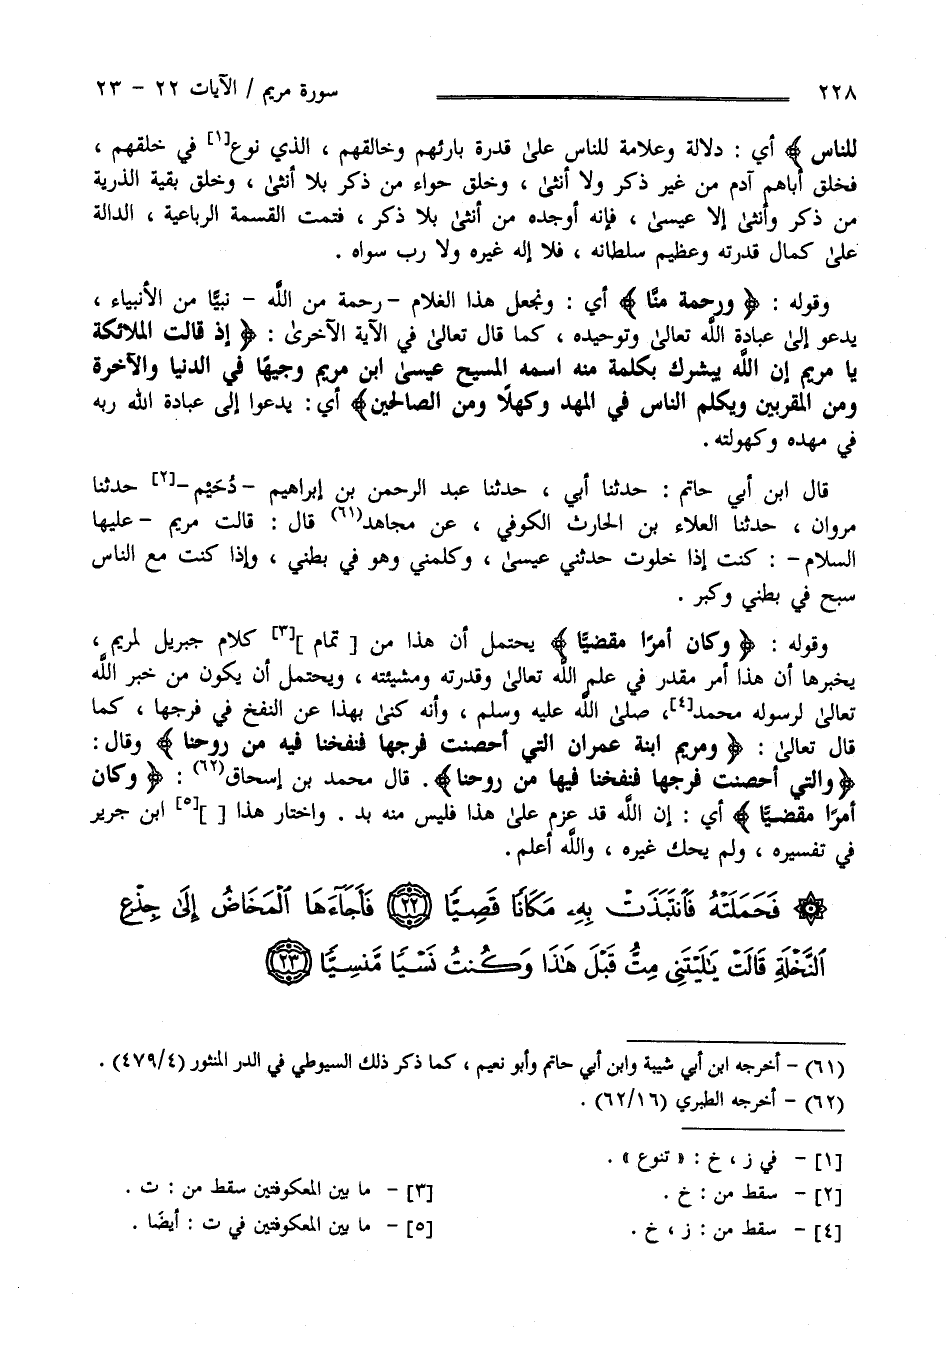 ٢٢٨ سورة مريم / الآيات ٢٢ - ٢٣
للناس ﴾ أي : دلالة وعلامة للناس علىٰ قدرة بارئهم وخالقهم ، الذي نوع[١] في خلقهم ،
فخلق أباهم آدم من غير ذكر ولا أنثىٰ ، وخلق حواء من ذكر بلا أنثىٰ ، وخلق بقية الذرية
من ذكر وأنثىٰ إلا عيسىٰ ، فإنه أوجده من أنثىٰ بلا ذكر ، فتمت القسمة الرباعية ، الدالة
علىٰ كمال قدرته وعظيم سلطانه ، فلا إله غيره ولا رب سواه .
وقوله : ﴿ ورحمة منَّا ﴾ أي : ونجعل هذا الغلام -رحمة من اللَّه - نبيًّا من الأنبياء ،
يدعو إلىٰ عبادة اللَّه تعالىٰ وتوحيده ، كما قال تعالىٰ في الآية الآخرىٰ : ﴿ إذ قالت الملائكة
يا مريم إن اللَّه يبشرك بكلمة منه اسمه المسيح عيسىٰ ابن مريم وجيهًا في الدنيا والآخرة
ومن المقربين ويكلم الناس في المهد وكهلًا ومن الصالحين﴾ أي: يدعوا إلى عبادة الله ربه
في مهده وكهولته .
قال ابن أبي حاتم : حدثنا أبي ، حدثنا عبد الرحمن بن إبراهيم -دُحَيْم-[٢] حدثنا
مروان ، حدثنا العلاء بن الحارث الكوفي ، عن مجاهد(٦١) قال : قالت مريم -عليها
السلام- : كنت إذا خلوت حدثني عيسىٰ ، وكلمني وهو في بطني ، وإذا كنت مع الناس
سبح في بطني وكبر .
وقوله : ﴿ وكان أمرًا مقضيًّا ﴾ يحتمل أن هذا من [ تمام ][٣] كلام جبريل لمريم ،
يخبرها أن هذا أمر مقدر في علم اللَّه تعالىٰ وقدرته ومشيئته ، ويحتمل أن يكون من خبر اللَّه
تعالىٰ لرسوله محمد[٤]، صلىٰ اللَّه عليه وسلم ، وأنه كنىٰ بهذا عن النفخ في فرجها ، كما
قال تعالىٰ : ﴿ ومريم ابنة عمران التي أحصنت فرجها فنفخنا فيه من روحنا ﴾ وقال :
﴿والتي أحصنت فرجها فنفخنا فيها من روحنا﴾ . قال محمد بن إسحاق(٦٢) : ﴿ وكان
أمرًا مقضيًّا ﴾ أي : إن اللَّه قد عزم علىٰ هذا فليس منه بد . واختار هذا [ ][٥] ابن جرير
في تفسيره ، ولم يحك غيره ، واللَّه أعلم .
۞ فَحَمَلَتْهُ فَٱنتَبَذَتْ بِهِۦ مَكَانًا قَصِيًّا ﴿٢٢﴾ فَأَجَآءَهَا ٱلْمَخَاضُ إِلَىٰ جِذْعِ
ٱلنَّخْلَةِ قَالَتْ يَٰلَيْتَنِى مِتُّ قَبْلَ هَٰذَا وَكُنتُ نَسْيًا مَّنسِيًّا ﴿٢٣﴾
(٦١) - أخرجه ابن أبي شيبة وابن أبي حاتم وأبو نعيم ، كما ذكر ذلك السيوطي في الدر المنثور (٤٧٩/٤) .
(٦٢) - أخرجه الطبري (٦٢/١٦) .
[١] - في ز ، خ : « تنوع » .
[٢] - سقط من : خ . [٣] - ما بين المعكوفتين سقط من : ت .
[٤] - سقط من : ز ، خ . [٥] - ما بين المعكوفتين في ت : أيضًا .